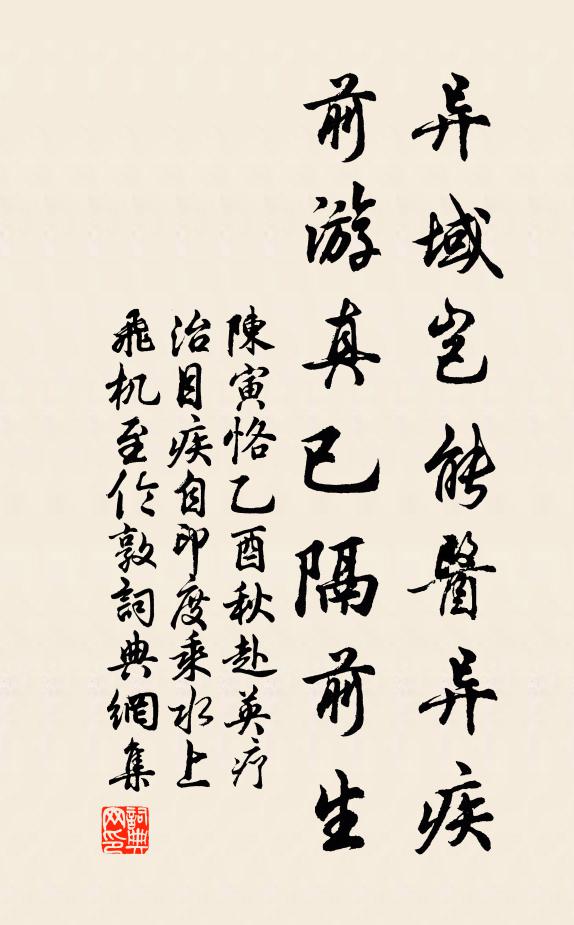 异域岂能醫异疾
前游真已隔前生
陳寅恪乙酉秋赴英疗
治目疾自印度乘水上
飛机至伦敦詞典網集
詞典
网印